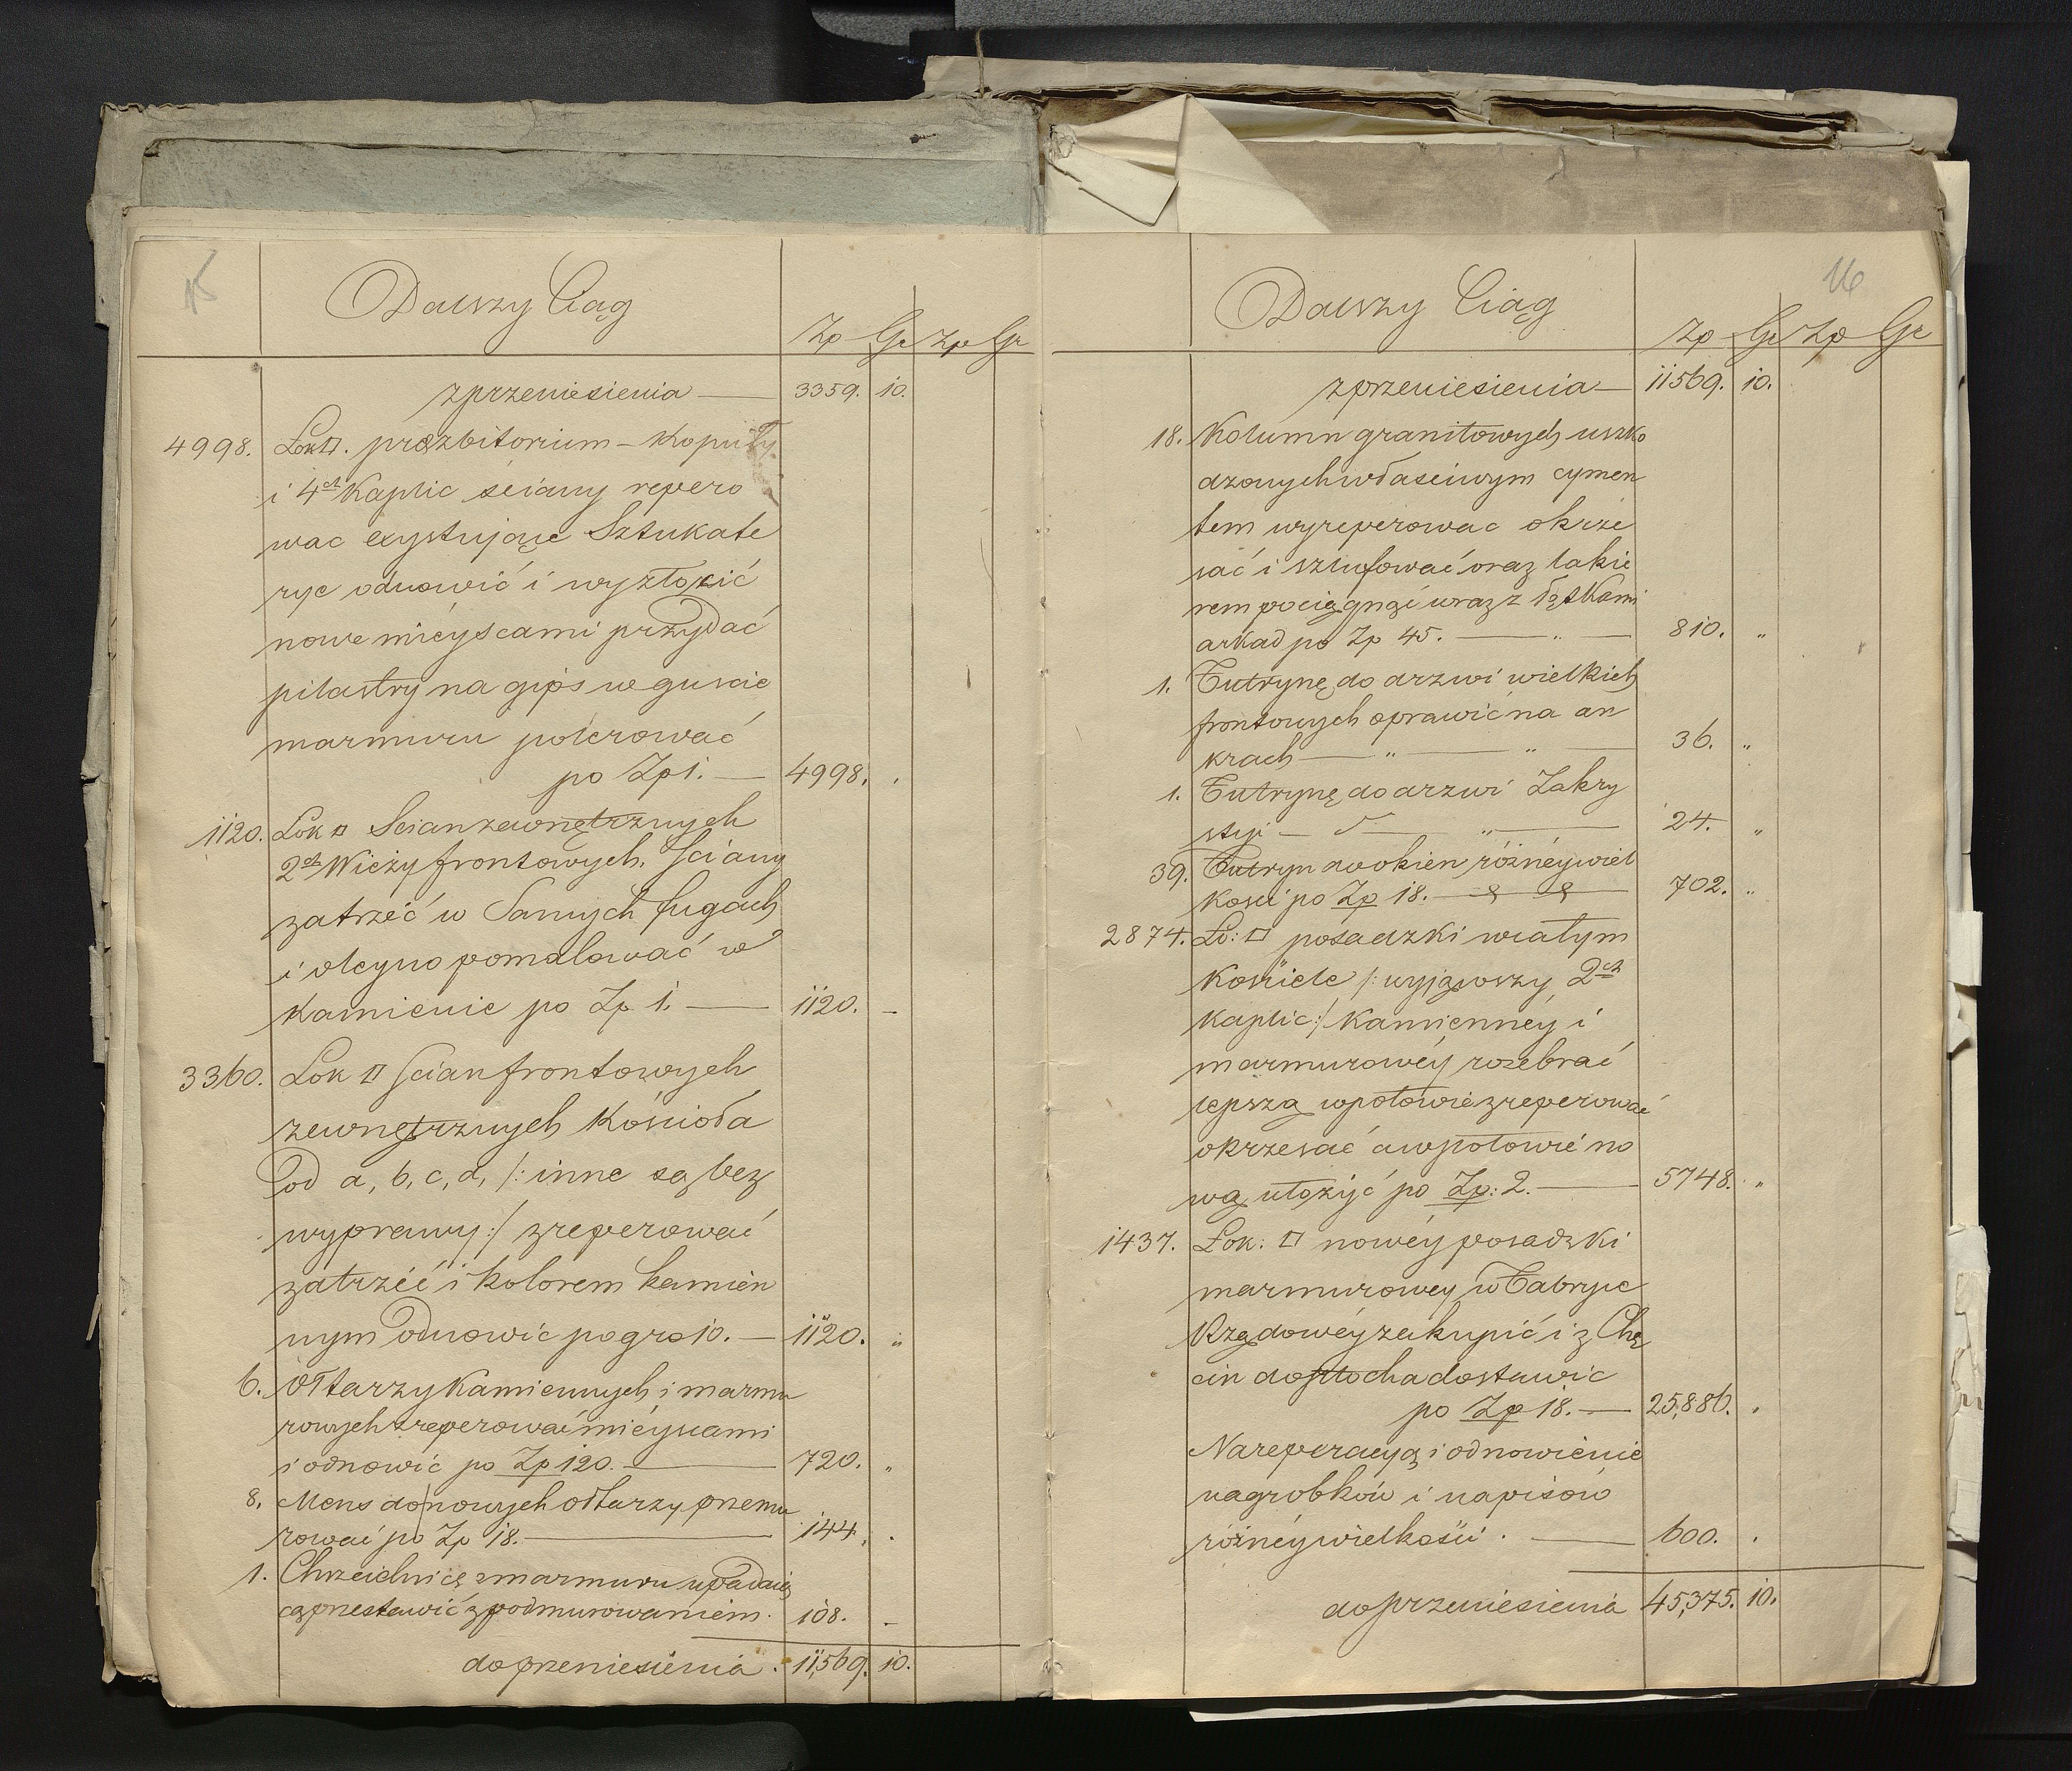 15
Dalszy Ciąg
Zp Gr Zp Gr
z przeniesienia — 3359. 10.
4998. Łok □. prezbitorium – Kopuły
i 4ch Kaplic sciany repero
wac exystujące Sztukate
rye odnowić i wyzłocić
nowe mieyscami przydać
pilastry na gips w guscie
marmuru polerować
po Zp 1. — 4998. .
1120. Łok □ Scian zewnętrznych
2ch Wieży frontowych. Sciany
zatrzéć w Samych fugach
i oleyno pomalować w
Kamienie po Zp 1. — 1120. –
3360. Łok □ Scian frontowych
zewnętrznych Kościoła
od a, b, c, d, /: inne są bez
wyprawy :/ zreperować
zatrzéć i kolorem kamien
nym odnowic po gro 10. — 1120. "
6. Ołtarzy Kamiennych i marmu
rowych zreperować miéyscami
i odnowić po Zp 120. — 720. "
8. Mens do nowych ołtarzy przemu
rować po Zp 18. — 144. .
1. Chrzcielnicę z marmuru upadaią
cą przestawić z podmurowaniem. 108. –
do przeniesienia . 11,569. 10.
16
Dalszy Ciąg
Zp Gr Zp Gr
z przeniesienia — 11569. 10.
18. Kolumn granitowych uszko
dzonych właściwym cymen
tem wyreperowac okrze
sać i szlufować oraz lakie
rem pociągnąć wraz z łątkami
arkad po Zp 45. — " — 810. "
1. Futrynę do drzwi wielkich
frontowych oprawić na an
krach — " — " — 36. "
1. Futrynę do drzwi Zakry
styi — " — 24. "
39. Futryn do okien różnéy wiel
kości po Zp 18. — 702. "
2874. Ło: □ posadzki w całym
Kościele /: wyjąwszy 2ch
Kaplic :/ Kamiennéy i
marmurowéy rozebrać
lepszą w połowie zreperować
okrzesać a w połowie no
wą ułożyć po Zp: 2. — 5748. "
1437. Łok: □ nowéy posadzki
marmurowey w Fabryce
Rządowéy zakupić i z Chę
cin do Płocka dostawic
po Zp 18. — 25,886. .
Na reperacyą i odnowienie
nagrobków i napisów
różnéy wielkości . — 600. .
do przeniesienia 45,375. 10.